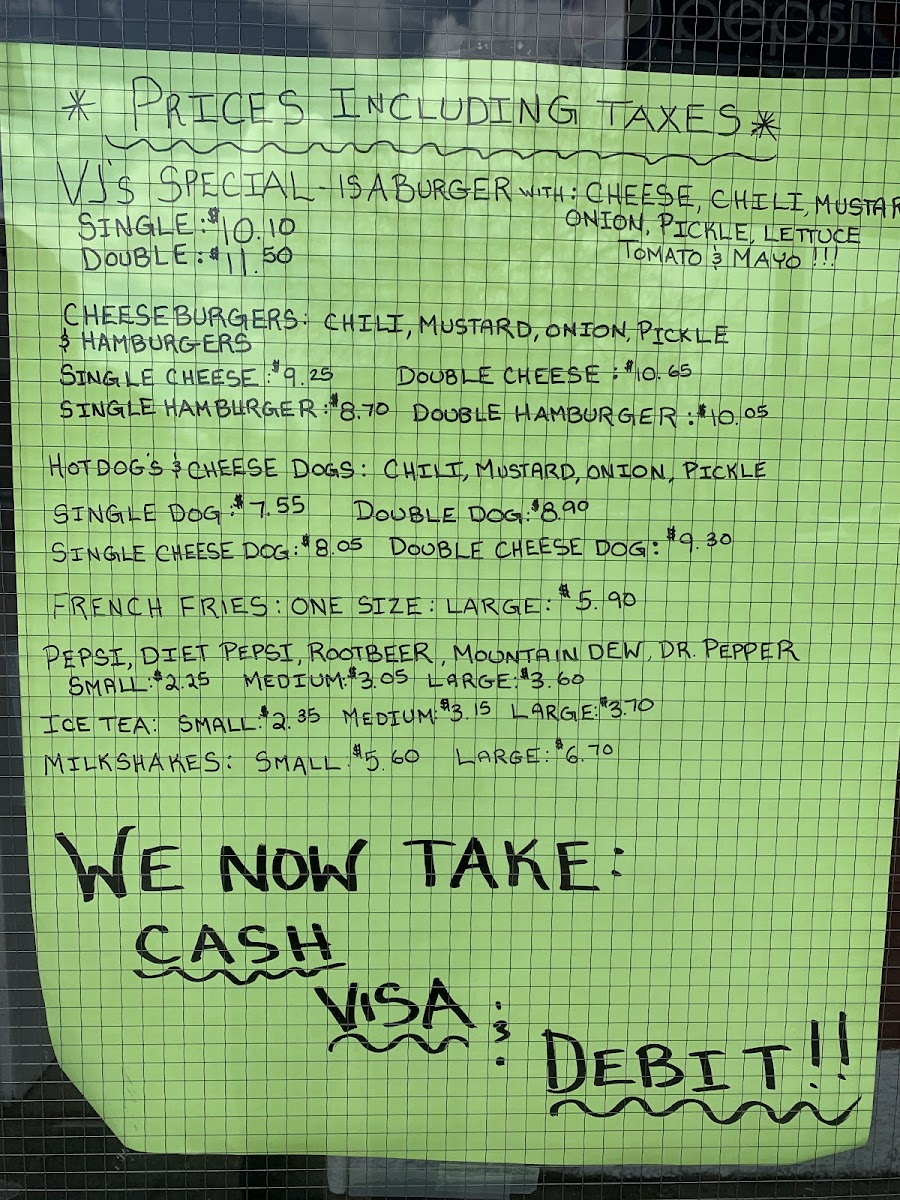 pepsi
* PRICES INCLUDING TAXES *
VJ's SPECIAL - IS A BURGER WITH: CHEESE, CHILI, MUSTAR
SINGLE: $10.10 ONION, PICKLE, LETTUCE
DOUBLE: $11.50 TOMATO & MAYO !!!
CHEESEBURGERS: CHILI, MUSTARD, ONION, PICKLE
& HAMBURGERS
SINGLE CHEESE: $9.25 DOUBLE CHEESE: $10.65
SINGLE HAMBURGER: $8.70 DOUBLE HAMBURGER: $10.05
HOTDOG'S & CHEESE DOGS: CHILI, MUSTARD, ONION, PICKLE
SINGLE DOG: $7.55 DOUBLE DOG: $8.90
SINGLE CHEESE DOG: $8.05 DOUBLE CHEESE DOG: $9.30
FRENCH FRIES: ONE SIZE: LARGE: $5.90
PEPSI, DIET PEPSI, ROOTBEER, MOUNTAIN DEW, DR. PEPPER
SMALL: $2.25 MEDIUM: $3.05 LARGE: $3.60
ICE TEA: SMALL: $2.35 MEDIUM: $3.15 LARGE: $3.70
MILKSHAKES: SMALL: $5.60 LARGE: $6.70
WE NOW TAKE:
CASH
VISA &
DEBIT!!